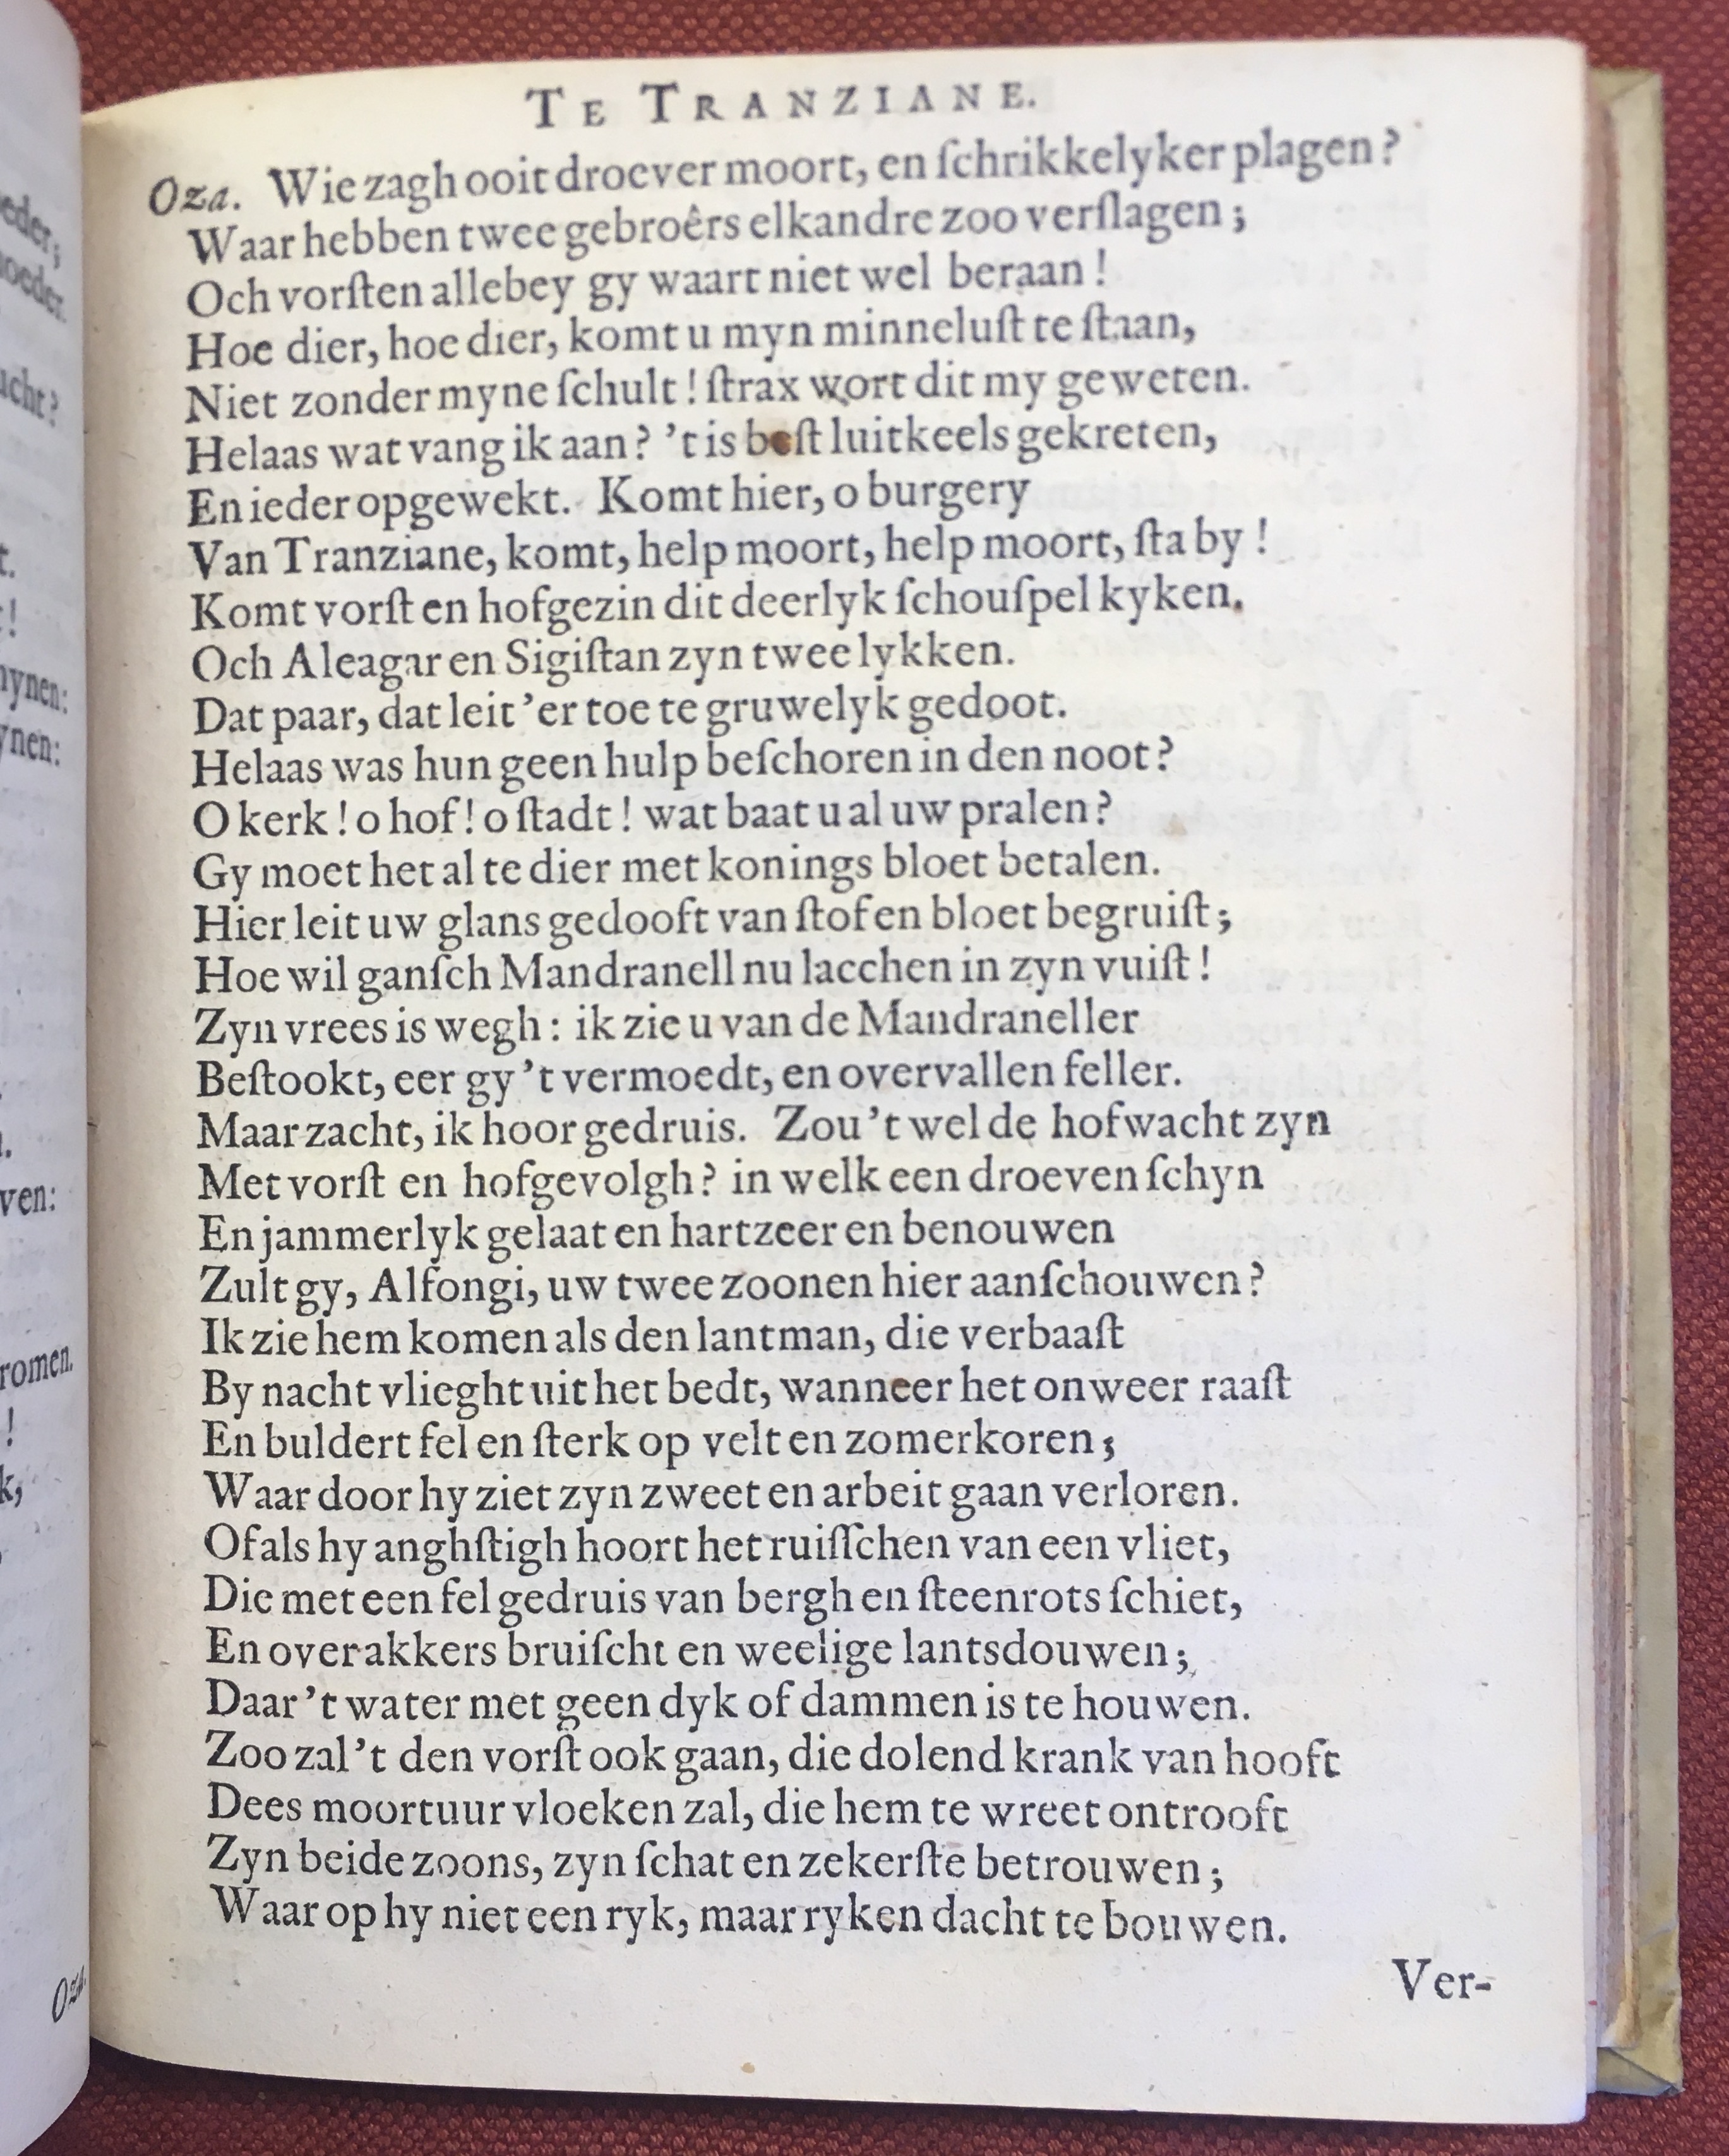 TE TRANZIANE.
Oza. Wie zagh ooit droever moort, en ſchrikkelyker plagen?
Waar hebben twee gebroêrs elkandre zoo verſlagen;
Och vorſten allebey gy waart niet wel beraan!
Hoe dier, hoe dier, komt u myn minneluſt te ſtaan,
Niet zonder myne ſchult! ſtrax wort dit my geweten.
Helaas wat vang ik aan? 't is beſt luitkeels gekreten,
En ieder opgewekt. Komt hier, o burgery
Van Tranziane, komt, help moort, help moort, ſta by!
Komt vorſt en hofgezin dit deerlyk ſchouſpel kyken.
Och Aleagar en Sigiſtan zyn twee lykken.
Dat paar, dat leit 'er toe te gruwelyk gedoot.
Helaas was hun geen hulp beſchoren in den noot?
O kerk! o hof! o ſtadt! wat baat u al uw pralen?
Gy moet het al te dier met konings bloet betalen.
Hier leit uw glans gedooft van ſtof en bloet begruiſt;
Hoe wil ganſch Mandranell nu lacchen in zyn vuiſt!
Zyn vrees is wegh: ik zie u van de Mandraneller
Beſtookt, eer gy 't vermoedt, en overvallen feller.
Maar zacht, ik hoor gedruis. Zou 't wel de hofwacht zyn
Met vorſt en hofgevolgh? in welk een droeven ſchyn
En jammerlyk gelaat en hartzeer en benouwen
Zult gy, Alfongi, uw twee zoonen hier aanſchouwen?
Ik zie hem komen als den lantman, die verbaaſt
By nacht vlieght uit het bedt, wanneer het onweer raaſt
En buldert fel en ſterk op velt en zomerkoren;
Waar door hy ziet zyn zweet en arbeit gaan verloren.
Of als hy anghſtigh hoort het ruiſſchen van een vliet,
Die met een fel gedruis van bergh en ſteenrots ſchiet,
En over akkers bruiſcht en weelige lantsdouwen;
Daar 't water met geen dyk of dammen is te houwen.
Zoo zal 't den vorſt ook gaan, die dolend krank van hooft
Dees moortuur vloeken zal, die hem te wreet ontrooft
Zyn beide zoons, zyn ſchat en zekerſte betrouwen;
Waar op hy niet een ryk, maar ryken dacht te bouwen.
Ver-